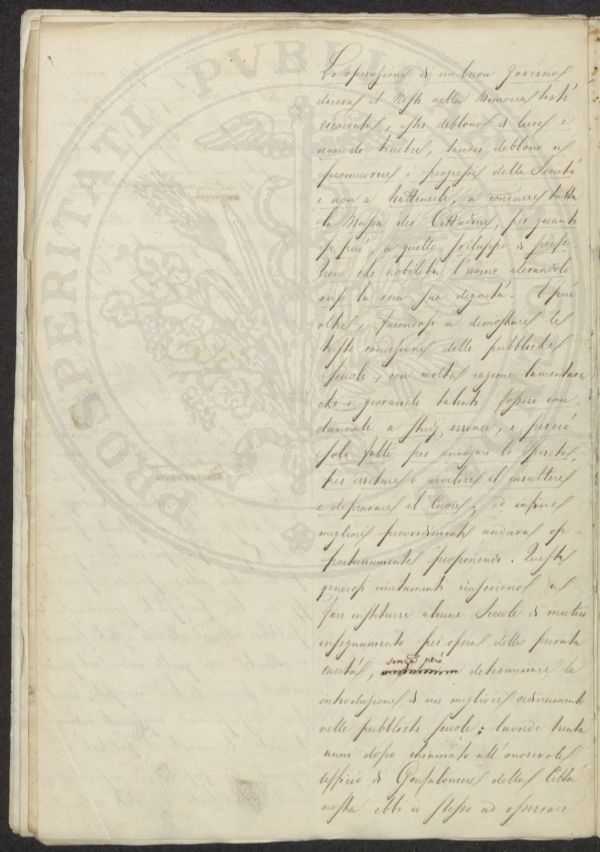 Le operazioni di un buon Governo
diceva il nella Memoria testè
, esser debbono di luce e
non di tenebre, tender debbono a
promuovere i progressi della Società
e non a trattenerli, a condurre tutta
la Massa dei Cittadini, per quanto
si può, a quello sviluppo di perfe-
zione che nobilita l'uomo elevandolo
verso la vera sua dignità. E più
oltre, facendosi a dimostrare le
triste condizioni delle pubbliche
Scuole, con molta ragione lamentava
che i giovanili talenti fossero con-
dannati a studj erronei, e perciò
solo fatti per annojare lo spirito,
per irritare e avvilire il carattere
e depravare il Cuore; ed infine
migliori provvedimenti andava op-
portunamente proponendo. Questi
generosi incitamenti riuscirono a
fare instituire alcune Scuole di mutuo
insegnamento per opera della privata
carità, senza però determinare la
introduzione di un migliore ordinamento
nelle pubbliche Scuole; laonde trenta
anni dopo chiamato all'onorevole
ufficio di Gonfaloniere della Città
nostra ebbi io stesso ad osservare
PROSPERITATI PVBLIC